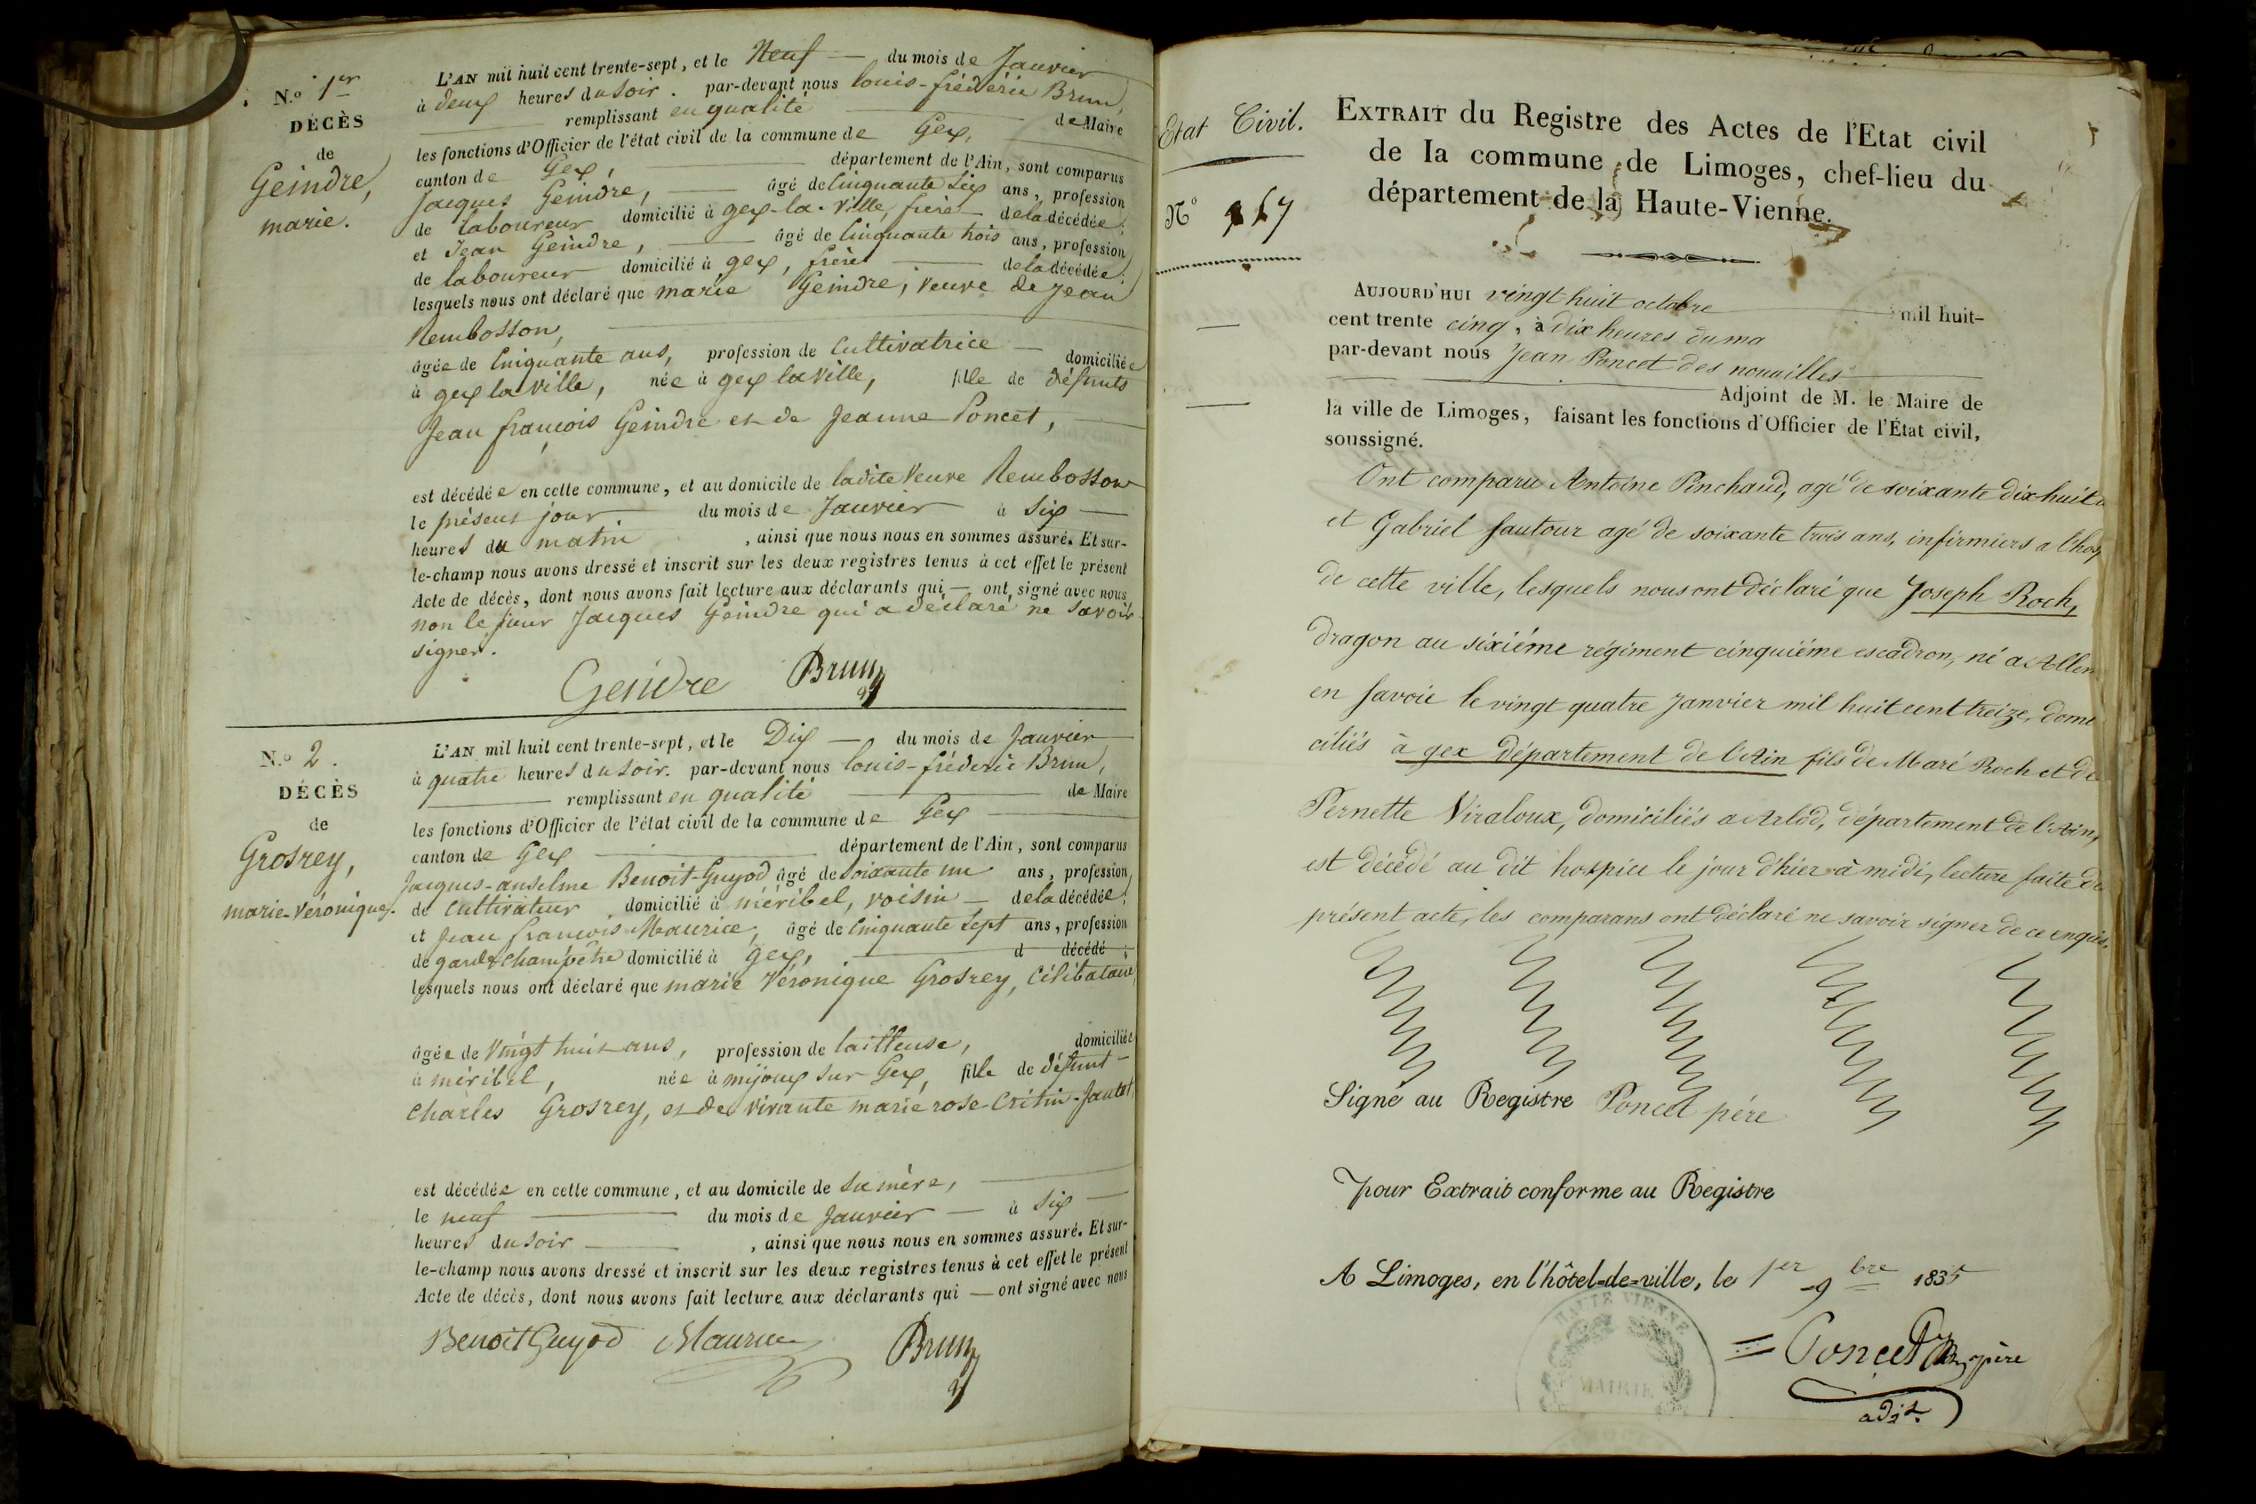 N.o 1er
DÉCÈS
de
Geindre,
marie.
L'AN mil huit cent trente-sept, et le Neuf — du mois de Janvier
à deux heures du soir. par-devant nous louis-frédéric Brun,
remplissant en qualité de Maire
les fonctions d'Officier de l'état civil de la commune de Gex,
canton de Gex, département de l'Ain, sont comparus
Jacques Geindre, — âgé de Cinquante six ans, profession
de laboureur domicilié à gex-la-ville, frère de la décédée;
et Jean Geindre, — âgé de Cinquante trois ans, profession
de laboureur domicilié à gex, frère — de la décédée;
lesquels nous ont déclaré que marie Geindre, veuve de Jean
Rembosson,
âgée de Cinquante ans, profession de Cultivatrice — domiciliée
à gex la ville, née à gex la ville, fille de défunts
Jean françois Geindre et de Jeanne Poncet,
est décédée en cette commune, et au domicile de ladite veuve Rembosson
le présent jour du mois de Janvier à six —
heures du matin, ainsi que nous nous en sommes assuré. Et sur-
le-champ nous avons dressé et inscrit sur les deux registres tenus à cet effet le présent
Acte de décès, dont nous avons fait lecture aux déclarants qui — ont signé avec nous
non le sieur Jacques Geindre qui a déclaré ne savoir
signer.
Gendre Brun
N.o 2.
DÉCÈS
de
Grosrey,
marie-Véronique.
L'AN mil huit cent trente-sept, et le Dix — du mois de Janvier
à quatre heures du soir. par-devant nous louis-fréderic Brun,
remplissant en qualité de Maire
les fonctions d'Officier de l'état civil de la commune de Gex
canton de Gex département de l'Ain, sont comparus
Jacques-anselme Benoit-Guyod âgé de soixante un ans, profession
de Cultivateur domicilié à méribel, voisin — de la décédée;
et Jean françois Maurice, âgé de Cinquante sept ans, profession
de garde champêtre domicilié à gex, d décédé;
lesquels nous ont déclaré que marie Véronique Grosrey, Célibataire,
âgée de Vingt huit ans, profession de tailleuse, domiciliée
à méribel, née à mijoux sur Gex, fille de défunt
Charles Grosrey, et de vivante marie rose
est décédée en cette commune, et au domicile de sa mère,
le neuf du mois de Janvier — à six —
heures du soir —, ainsi que nous nous en sommes assuré. Et sur-
le-champ nous avons dressé et inscrit sur les deux registres tenus à cet effet le présent
Acte de décès, dont nous avons fait lecture aux déclarants qui — ont signé avec nous
Benoit Guyod Maurice Brun
Etat Civil.
No 167
EXTRAIT du Registre des Actes de l'Etat civil
de la commune de Limoges, chef-lieu du
département de la Haute-Vienne.
AUJOURD'HUI vingt huit octobre mil huit-
cent trente cinq, à dix heures du ma
par-devant nous Jean Poncet des nouailles
Adjoint de M. le Maire de
la ville de Limoges, faisant les fonctions d'Officier de l'État civil,
soussigné.
Ont comparu Antoine Pinchaud, agé de soixante dix huit
et Gabriel fautour agé de soixante trois ans, infirmiers a l'hosp
de cette ville, lesquels nous ont déclaré que Joseph Roch,
dragon au sixiéme régiment cinquiéme escadron, né a Allem
en Savoie le vingt quatre Janvier mil huit cent treize, domi
ciliés à gex département de l'Ain fils de Maré Roch et de
Pernette Viraloux, domiciliés a Arlod, département de l'Ain,
est décédé au dit hospice le jour d'hier à midi, lecture faite du
présent acte, les comparans ont déclaré ne savoir signer de ce enquis.
Signé au Registre Poncet père
pour Extrait conforme au Registre
A Limoges, en l'hôtel-de-ville, le 1er 9bre 1835
Poncet père
adjt
HAUTE VIENNE
MAIRIE